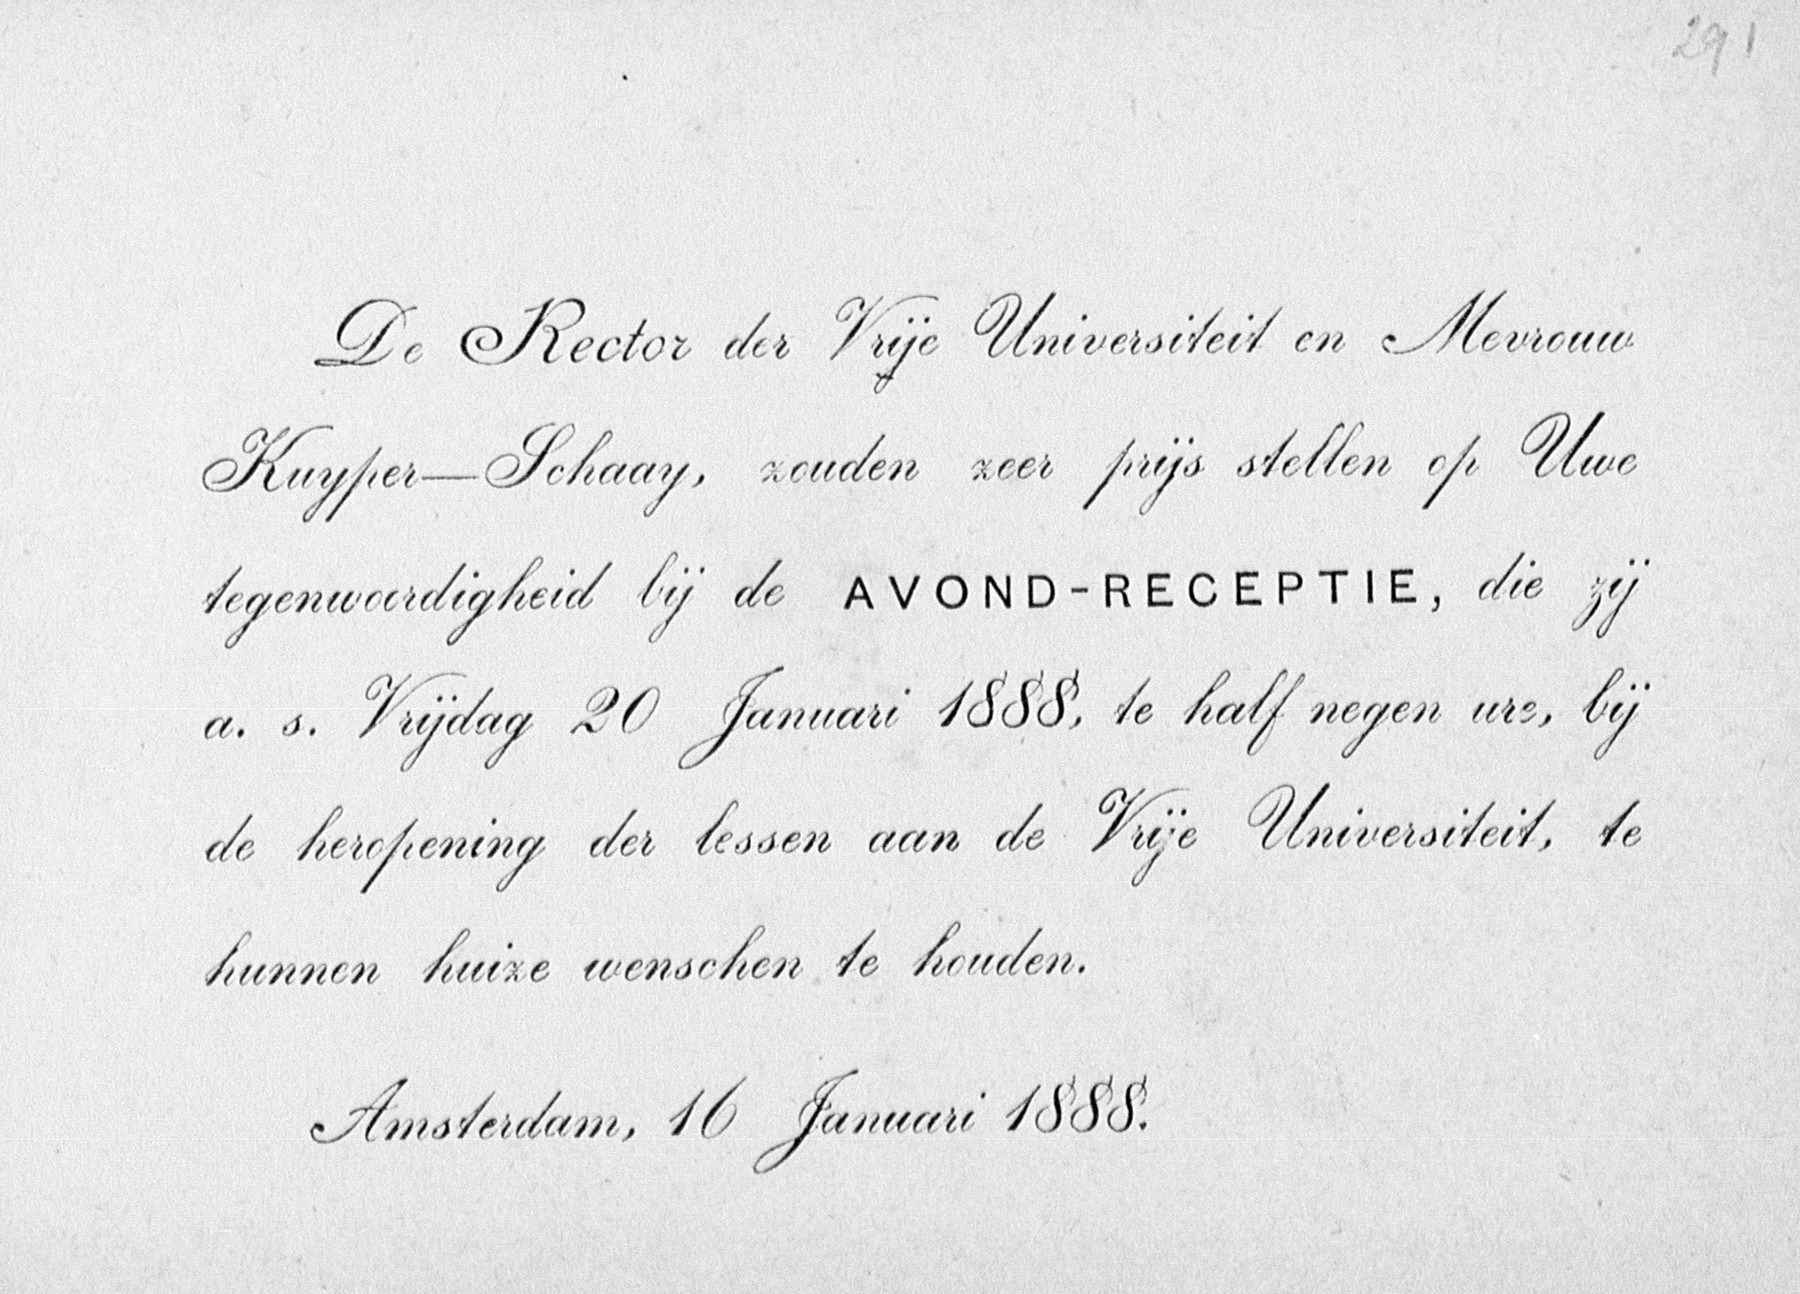 291
De Rector der Vrije Universiteit en Mevrouw
Kuyper—Schaay, zouden zeer prijs stellen op Uwe
tegenwoordigheid bij de AVOND-RECEPTIE, die zij
a. s. Vrijdag 20 Januari 1888, te half negen ure, bij
de heropening der lessen aan de Vrije Universiteit, te
hunnen huize wenschen te houden.
Amsterdam, 16 Januari 1888.